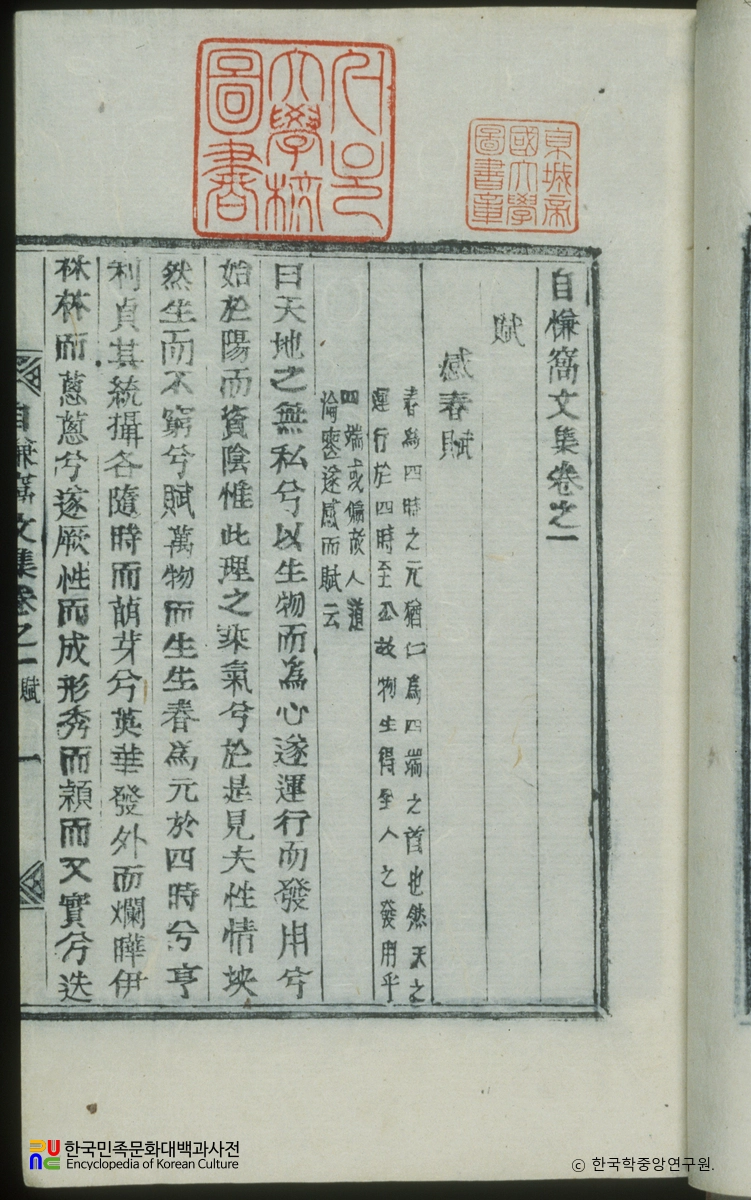 서울大學校圖書
京城帝國大學圖書章
自慊窩文集卷之一
賦
感春賦
春爲四時之元猶仁爲四端之首也然天之
運行於四時至公故物生得全人之發用乎
四端或偏故人道
淪喪遂感而賦云
曰天地之無私兮以生物而為心遂運行而發用兮
始於陽而資陰惟此理之乘氣兮於是見夫性情坱
然生而不窮兮賦萬物而生生春爲元於四時兮亨
利貞其統攝各隨時而萌芽兮英華發外而爛曄伊
林林而蔥蔥兮遂厥性而成形秀而穎而又實兮迭
自慊窩文集卷之一 賦 一
한국민족문화대백과사전
Encyclopedia of Korean Culture
ⓒ 한국학중앙연구원.